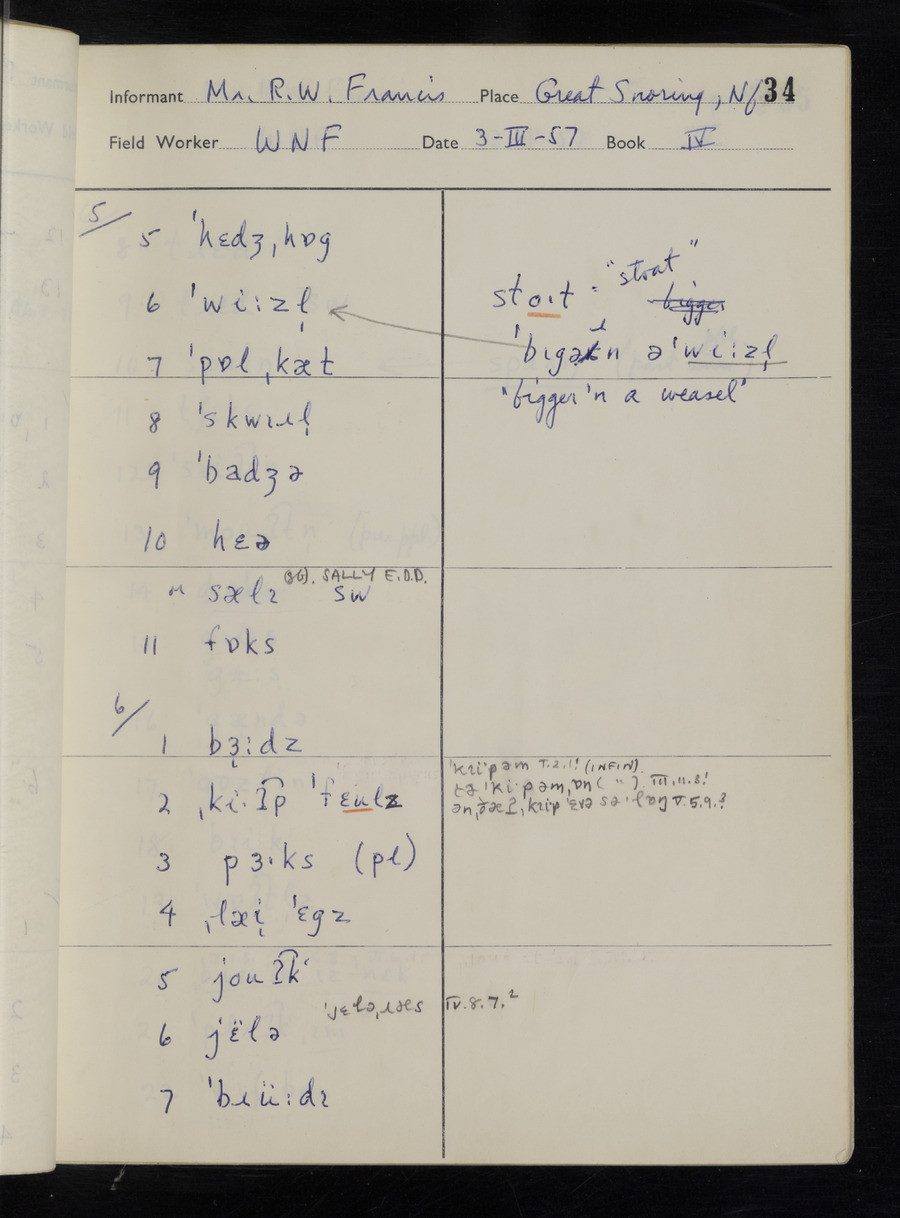 Informant Mr. R.W. Francis Place Great Snoring, Nf 34
Field Worker WNF Date 3-III-57 Book IV
5/
5 ˈhɛdʒˌhɒg
6 ˈwi:zl̩
7 ˈpɒlˌkæt
8 ˈskwɪɹl̩
9 ˈbadʒə
10 hɛə
" sælɪ SW
(86). SALLY E.D.D.
11 fɒks
6/
1 bɜ̣:dz
2 ˌki·ʔ͡p ˈfɛʉlz
3 pɜ·ks (pl)
4 ˌlæi̩ ˈɛgz
5 jouʔ͡k
ˈjɛləˌɹəɪs IV.8.7.²
6 jɛ̈lə
7 ˈbɹü:dɪ
sto·ɪt = "stoat"
ˈbɪgəɹn əˈwi:zl̩
"bigger'n a weasel"
ˈkɪipəm T.2.1! (INFIN).
tə ˈki·pəmˌɒn ( " ) III.11.8!
ənˌðæʔˌkɪip ˈɛvə sə·lɒŋ V.5.9.?